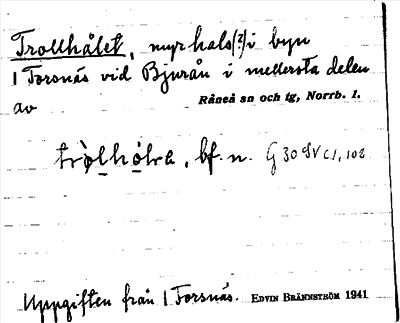 Trollhålet, myrhals(?) i byn
1 Torsnäs vid Bjurån i mellersta delen
av Råneå sn och tg, Norrb. l.
bf. n. G 30
Uppgiften från 1 Torsnäs. EDVIN BRÄNNSTRÖM 1941